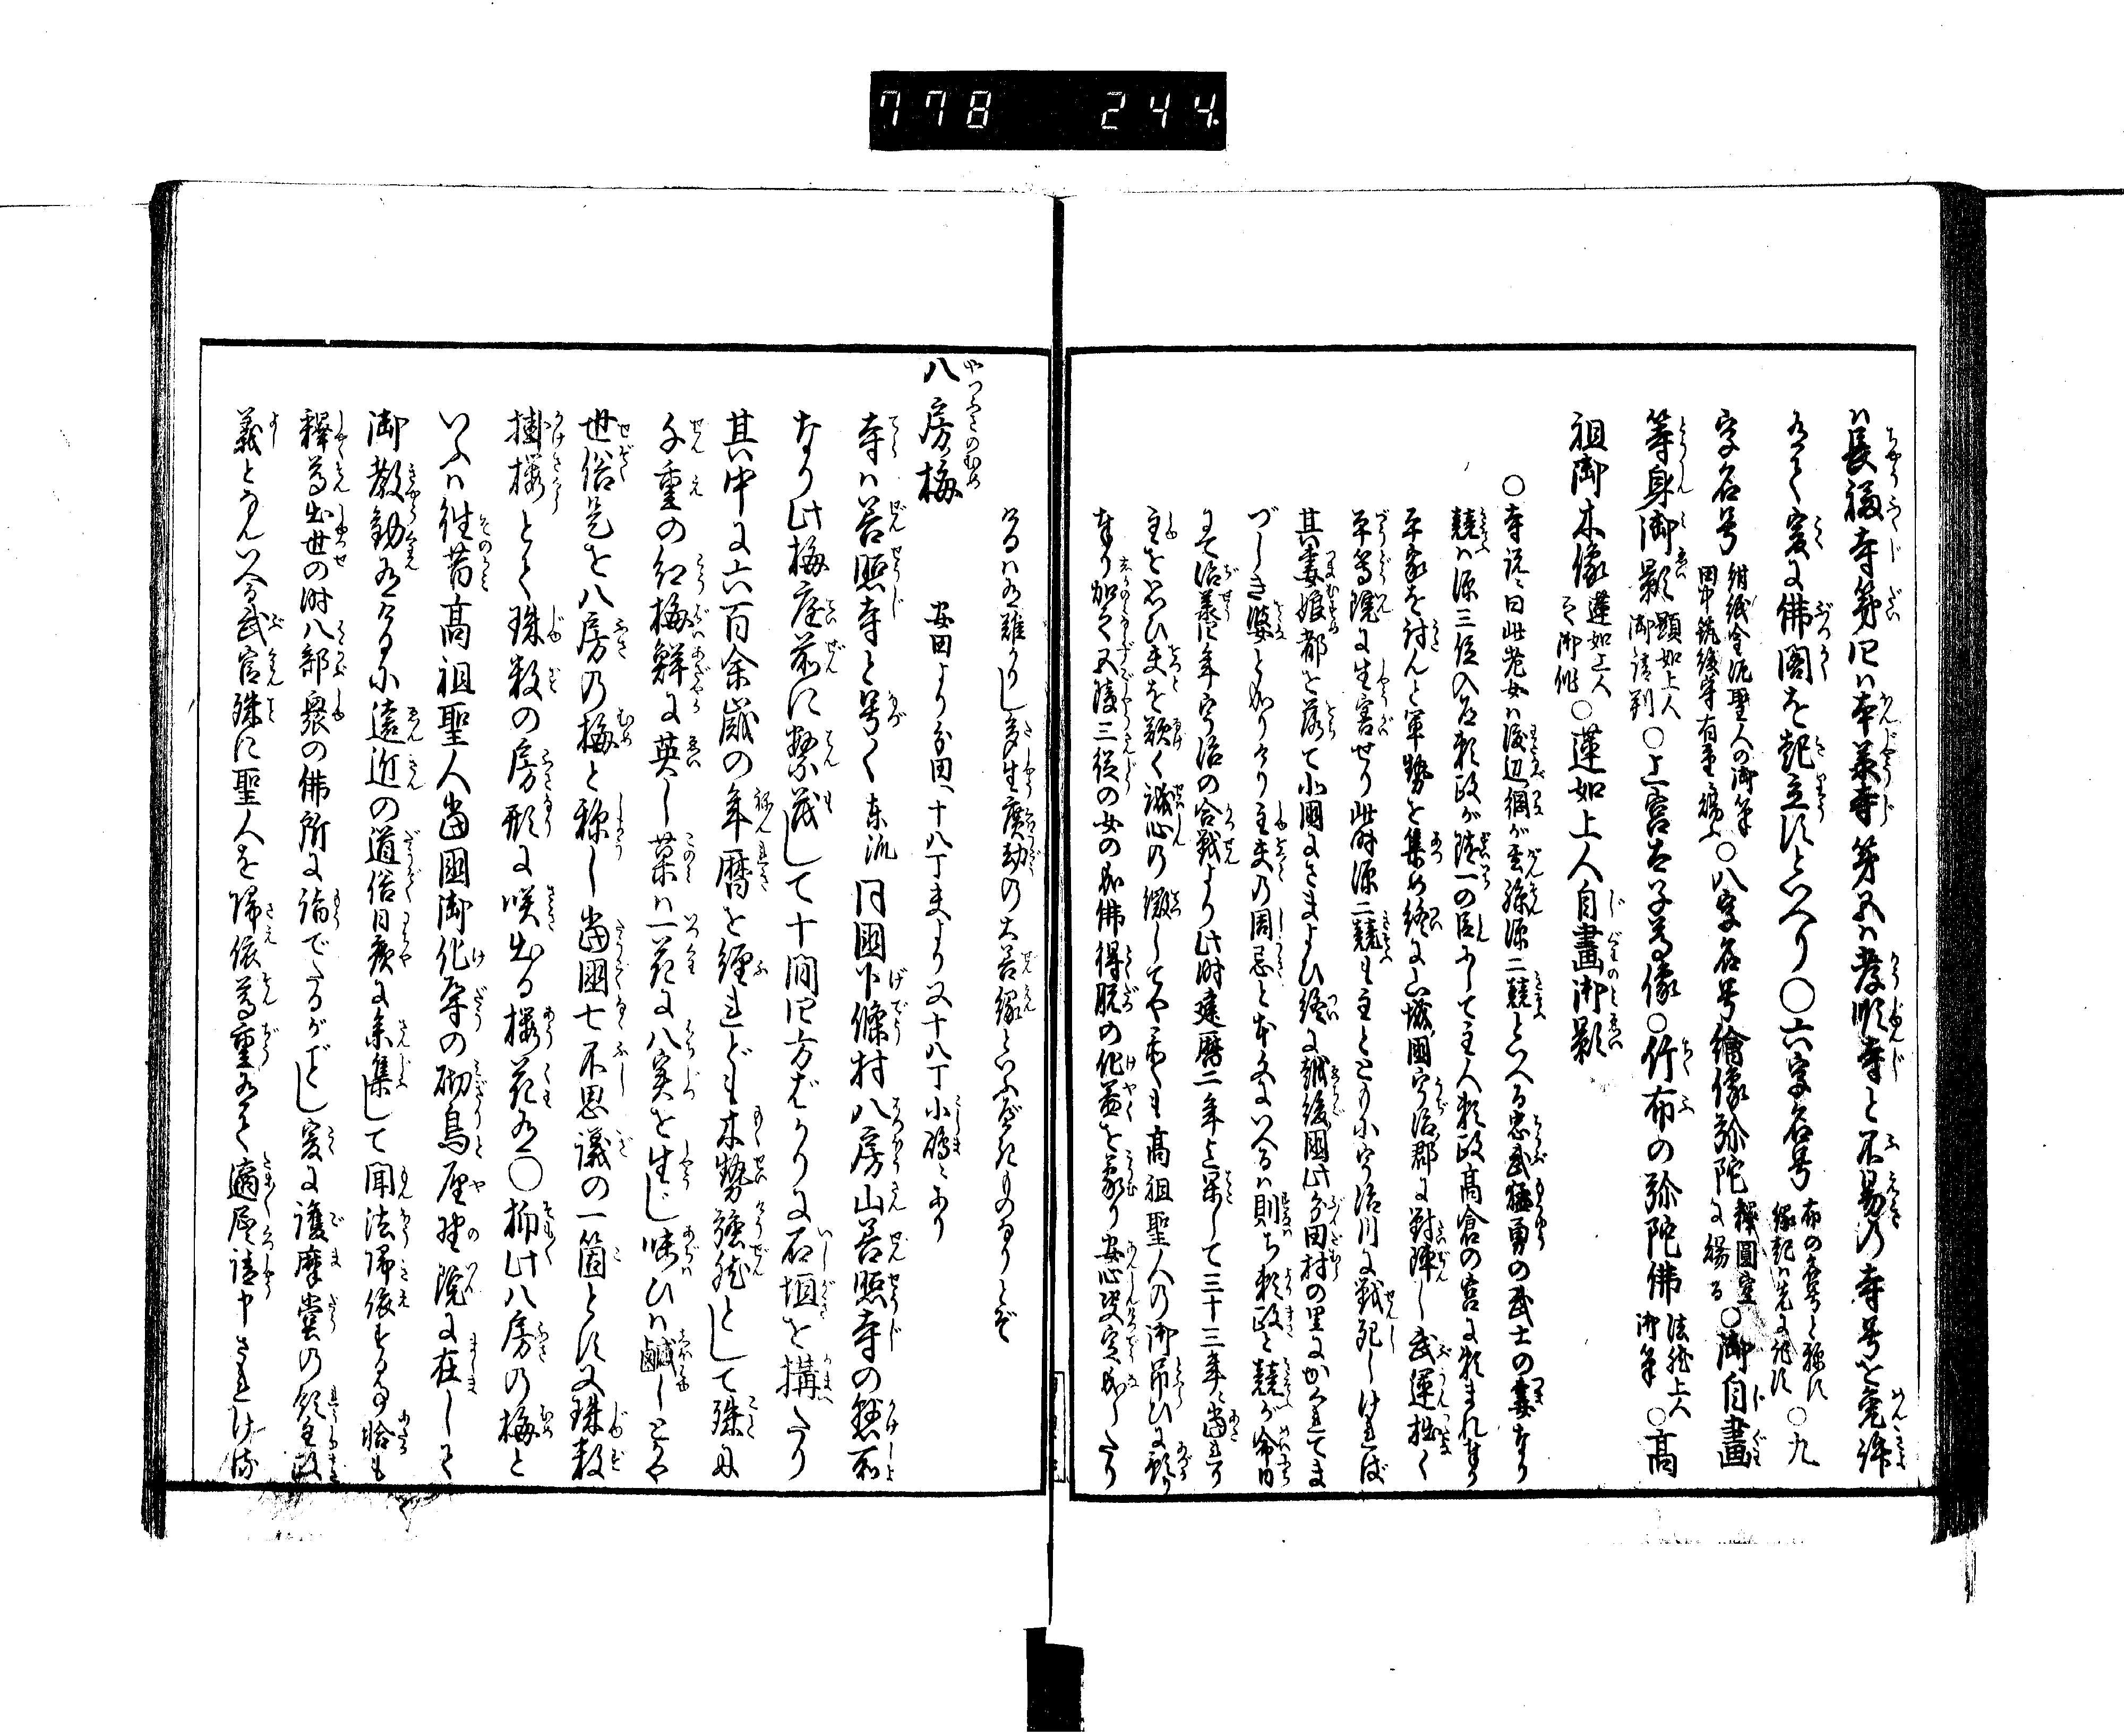 778 244
ハ長福寺第四ハ本義寺第五ハ孝順寺と不易の寺号を免許
有て爰に佛閣を起立すといへり○六字名号 布の名号と称す 縁起ハ先に記す ○九
字名号 紺紙金泥聖人の御筆 田中筑後守有重へ賜ふ ○八字名号繪像弥陀 釋圓空 に賜る ○御自畫
等身御影 顕如上人 御請判 ○上宮太子尊像○竹布の弥陀佛 法然上人 御筆 ○高
祖御木像 蓮如上人 之御作 ○蓮如上人自畫御影
○寺説ニ曰此老女ハ渡辺綱が玄孫源二競といへる忠武猛勇の武士の妻なり
競ハ源三位入道頼政が随一の臣にして主人頼政高倉の宮に頼まれ奉り
平家を討んと軍勢を集め終に山城國宇治郡に對陣し武運拙く
平等院に生害せり此時源二競も主とともに宇治川に戦死しけれバ
其妻娘都を落て北國にさまよひ終に越後國此分田村の里にかくれてま
づしき婆となりけり主夫の周忌と本文にいへるハ則ち頼政と競が命日
にて治義に年宇治の合戦より此時建暦二年迄星して三十三年ニ當れり
主を思ひ夫を歎く誠心の徹してや忝くも高祖聖人の御弔ひに預り
奉り加之五障三従の女の成佛得脱の化益を蒙り安心決定成したり
けるハ有難かりし多生廣劫の大善縁といふべきものなりとぞ
八房梅 安田より分田へ十八丁夫より又十八丁小嶋ニあり
寺ハ善照寺と号く 東流 同國下條村八房山善照寺の懸所
なり此梅庭前に繁茂して十間四方ばかりに石垣を構たり
其中に六百余歳の年暦を経れども木勢強然として殊に
千重の紅梅鮮に英し菓ハ一花に八実を生じ味ひハ鹹しとかや
世俗是を八房の梅と称し當國七不思議の一箇とす又珠数
掛桜とて珠数の房形に咲出る桜花有○抑此八房の梅と
いふハ往昔高祖聖人當國御化導の砌鳥屋野院に在しまして
御教勧有けるに遠近の道俗日夜に参集して聞法帰依する事恰も
釋尊出世の時八部衆の佛所に詣でたるがごとし爰に護摩堂の領主政
義となんいふ武官殊に聖人を帰依尊重有て適屈請申されける